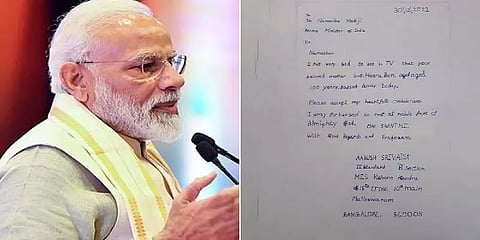 30/12/2022
To
Sir Narendra Modiji
Prime Minister of India
Sir,
Namaskar
I felt very sad to see in TV that your
beloved mother Smt. Heera Ben aged
100 years, passed away today.
Please accept my heartfelt condolences
I pray for her soul to rest at noble feet of
Almighty God. OM SHANTHI.
With Best Regards and Pranams
AARUSH SRIVATSA
II standard B section
MES Kishore Kendra
15th cross, 10th main
Malleswaram
BANGALORE, 560003